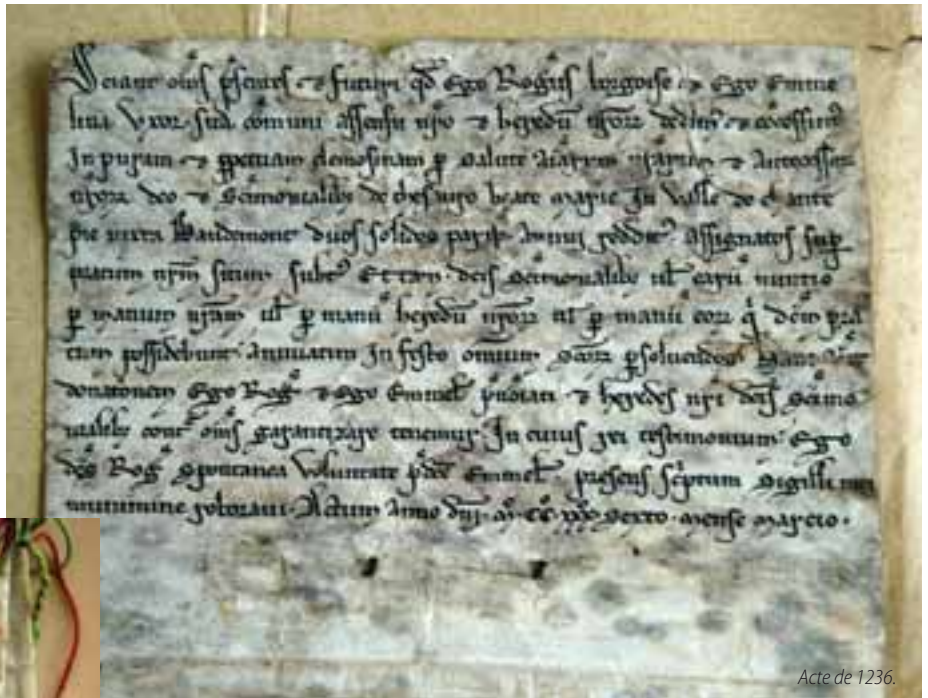 Sciant om̃s p̃sentes ⁊ futuri qđ ego Rog̃us borgoise ⁊ ego Emme
lina Vxor sua comuni assensu nr̃o ⁊ heredũ nr̃orꝝ dedim⁹ ⁊ cõcessim⁹
In puram ⁊ ꝑpetuam elemosinam ꝑ salute aĩarum nr̃arum ⁊ Antecessorꝝ
nr̃orꝝ deo ⁊ Sc̃imonialibꝫ de beate marie In Valle de cante
pie iuxta duos solidos parisꝭ Annui reddit⁹ Assignatos sup̃
pratum nr̃m situm subt⁹ dc̃is sc̃imonialibꝫ ul̃ earũ nuntio
ꝑ manum nr̃am ul̃ ꝑ manũ heredũ nr̃orꝝ ul̃ ꝑ manũ eorꝝ q̃ dc̃m pra
tum possidebunt Annuatim In festo omnium sc̃orꝝ ꝑsoluendos hanc aũt
donationem Ego Rog̃ ⁊ ego Emmel̃ p̃notati ⁊ heredes nr̃i dc̃is sc̃imo
nialibꝫ cont̃ om̃s garantizare tenemur In cuius rei testimonium Ego
dc̃s Rog̃ spontanea Voluntate p̃dc̃e Emmel̃ presens sc̃ptum sigilli mei
munimine roboraui. Actum Anno dñi. mͦ. ccͦ. xxxͦ. sexto. mense marcio.
Acte de 1236.